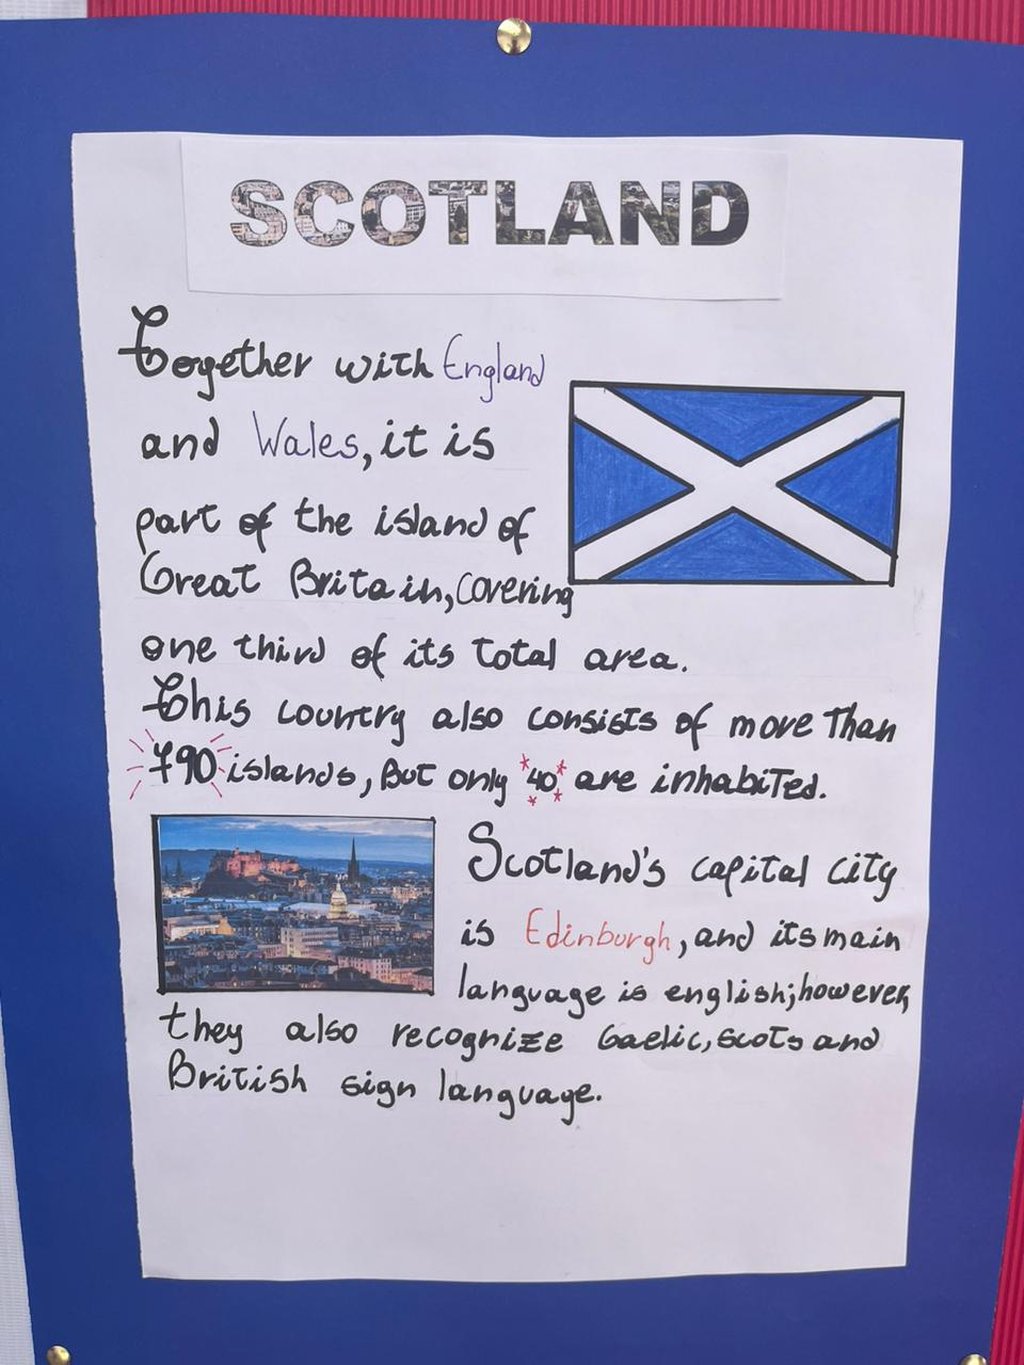 SCOTLAND
Together with England
and Wales, it is
part of the island of
Great Britain, covering
one third of its total area.
This country also consists of more than
790 islands, but only 40 are inhabited.
Scotland's capital city
is Edinburgh, and its main
language is english; however,
they also recognize Gaelic, scots and
British sign language.